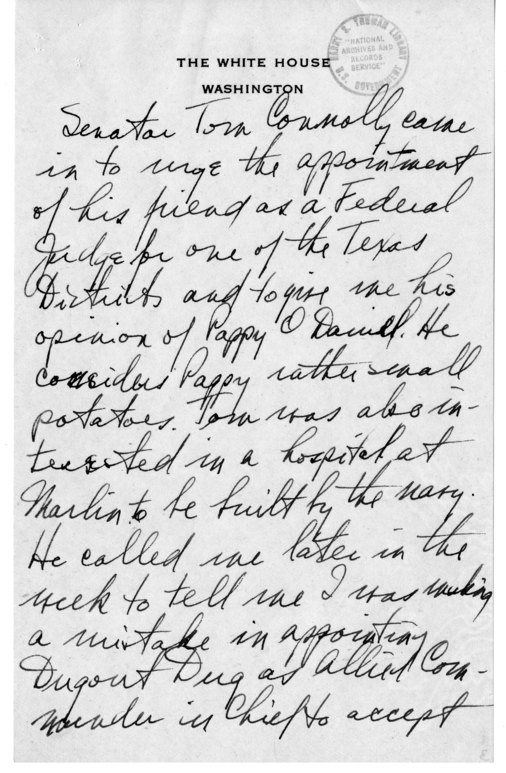 THE WHITE HOUSE
WASHINGTON
HARRY S. TRUMAN LIBRARY
"NATIONAL
ARCHIVES AND
RECORDS
SERVICE"
U.S. GOVERNMENT
Senator Tom Connolly came
in to urge the appointment
of his friend as a Federal
Judge for one of the Texas
Districts and to give me his
opinion of Pappy O Daniel. He
considers Pappy rather small
potatoes. Tom was also in-
terested in a hospital at
Marlin to be built by the navy.
He called me later in the
week to tell me I was making
a mistake in appointing
Dugout Dug as Allied Com-
mander in Chief to accept